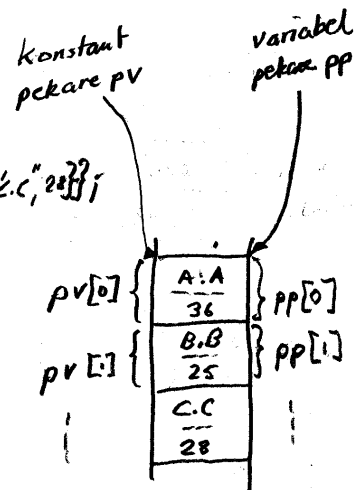 konstant
pekare pv
variabel
pekare pp
C.C", 28}};
pv[0]
A.A
36
pp[0]
pv[1]
B.B
25
pp[1]
C.C
28